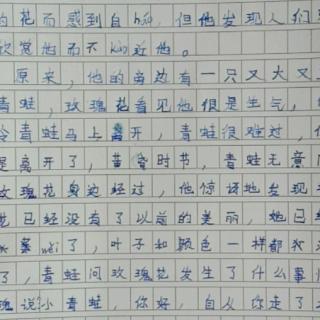 的花而感到自háo,但他发现人们
欣赏他而不kào近他。
原来,他的旁边有一只又大又
青蛙,玫瑰花看见他很是生气,
令青蛙马上离开,青蛙很难过,
是离开了,黄昏时节,青蛙无意
玫瑰花身边经过,他惊讶地发现
花已经没有了以前的美丽,她已经
蔡wěi了,叶子和颜色一样都
了,青蛙问玫瑰花发生了什么事
瑰说:"小青蛙,你好,自从你走了